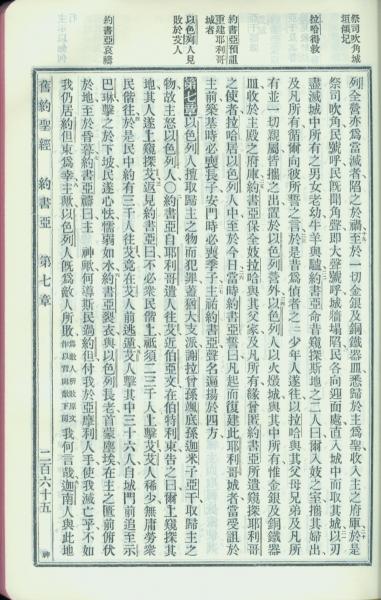 祭司吹角城
垣傾圮
拉哈得救
約書亞預詛
重建耶利哥
城者
以色列人見
敗於艾人
約書亞哀禱
列全營亦爲當滅者陷之於禍至於一切金銀及銅鐵器皿悉歸於主爲聖收入主之府庫於是
祭司吹角民號呼民旣聞角聲卽大聲號呼城墻塌陷民各向迎面處直入城中而取其城以刃
盡滅城中所有之男女老幼牛羊與驢約書亞命昔窺探斯地之二人曰爾入妓之室攜其婦出
及凡所有循爾向彼所誓之言於是昔爲偵者之二少年人遂往以拉哈與其父母兄弟及凡所
有並一切親屬皆攜之出置於以色列營外以色列人以火燬城與其中所有惟金銀及銅鐵器
皿收於主殿之府庫約書亞保全妓拉哈與其父家及凡所有緣曾匿約書亞所遣窺探耶利哥
之使者拉哈居以色列人中至於今日當時約書亞誓曰凡起而復建此耶利哥城者當受詛於
主前築基時必喪長子安門時必喪季子主祐約書亞聲名遍揚於四方
第七章以色列人擅取歸主之物而犯罪蓋猶大支派謝拉曾孫颯底孫迦米子亞干取歸主之
物故主怒以色列人〇約書亞自耶利哥遣人往艾近伯亞文在伯特利東告之曰爾上窺探其
地其人遂上窺探艾返見約書亞曰不必衆民偕上祇須二三千人上擊艾艾人稀少無庸勞衆
民偕往於是民中約有三千人往艾竟在艾人前逃遁艾人擊其中三十六人自城門前追至示
巴琳擊之於下坡民遂心怏懦弱如水約書亞裂衣與以色列長老首蒙塵埃在主之匱前俯伏
於地至於昏暮約書亞禱曰主 神歟何導斯民過約但付我於亞摩利人手使我滅亡乎不如
我仍居約但東爲幸主歟以色列人旣爲敵人所敗 我何言哉迦南人與此地
舊約聖經 約書亞 第七章 二百六十五 神